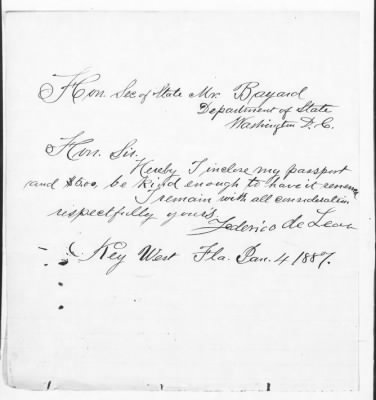 Hon. Sec of State Mr. Bayard
Department of State
Washington D. C.
Hon. Sir.
Hereby I inclose my passport
and $5.00, be kind enough to have it renew
I remain with all consideration
respectfully yours,
Federico de Leon
Key West Fla. Jan. 4 1887.